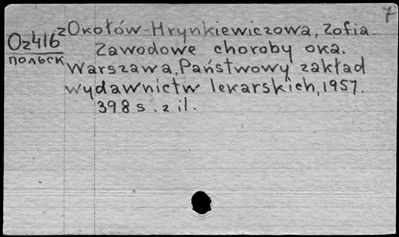 7
Oz416
польск
zОkołów-Hrynkiewiczowa, Zofia.
Zawodowe choroby oka.
Warszawa, Państwowy zakład
wydawnictw lekarskich, 1957.
398 s. z il.